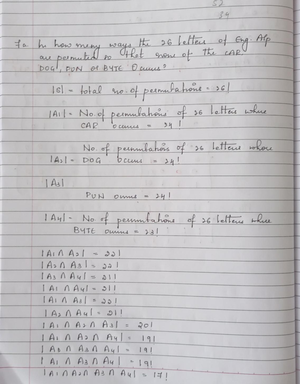 39
7. In how many ways the 26 letters of Eng Alp
are permuted so that none of the CAR
DOG, PUN or BYTE Occurs?
|S| - total no. of permutations = 26!
|A1| - No. of permutations of 26 letters where
CAR occurs = 24!
No. of permutations of 26 letters where
|A2| - DOG Occurs = 24!
|A3|
PUN occurs = 24!
|A4| - No. of permutations of 26 letters where
BYTE occurs = 23!
|A1 ∩ A2| = 22!
|A2 ∩ A3| = 22!
|A3 ∩ A4| = 21!
|A1 ∩ A4| = 21!
|A1 ∩ A3| = 22!
|A2 ∩ A4| = 21!
|A1 ∩ A2 ∩ A3| = 20!
|A1 ∩ A2 ∩ A4| = 19!
|A2 ∩ A3 ∩ A4| = 19!
|A1 ∩ A3 ∩ A4| = 19!
|A1 ∩ A2 ∩ A3 ∩ A4| = 17!